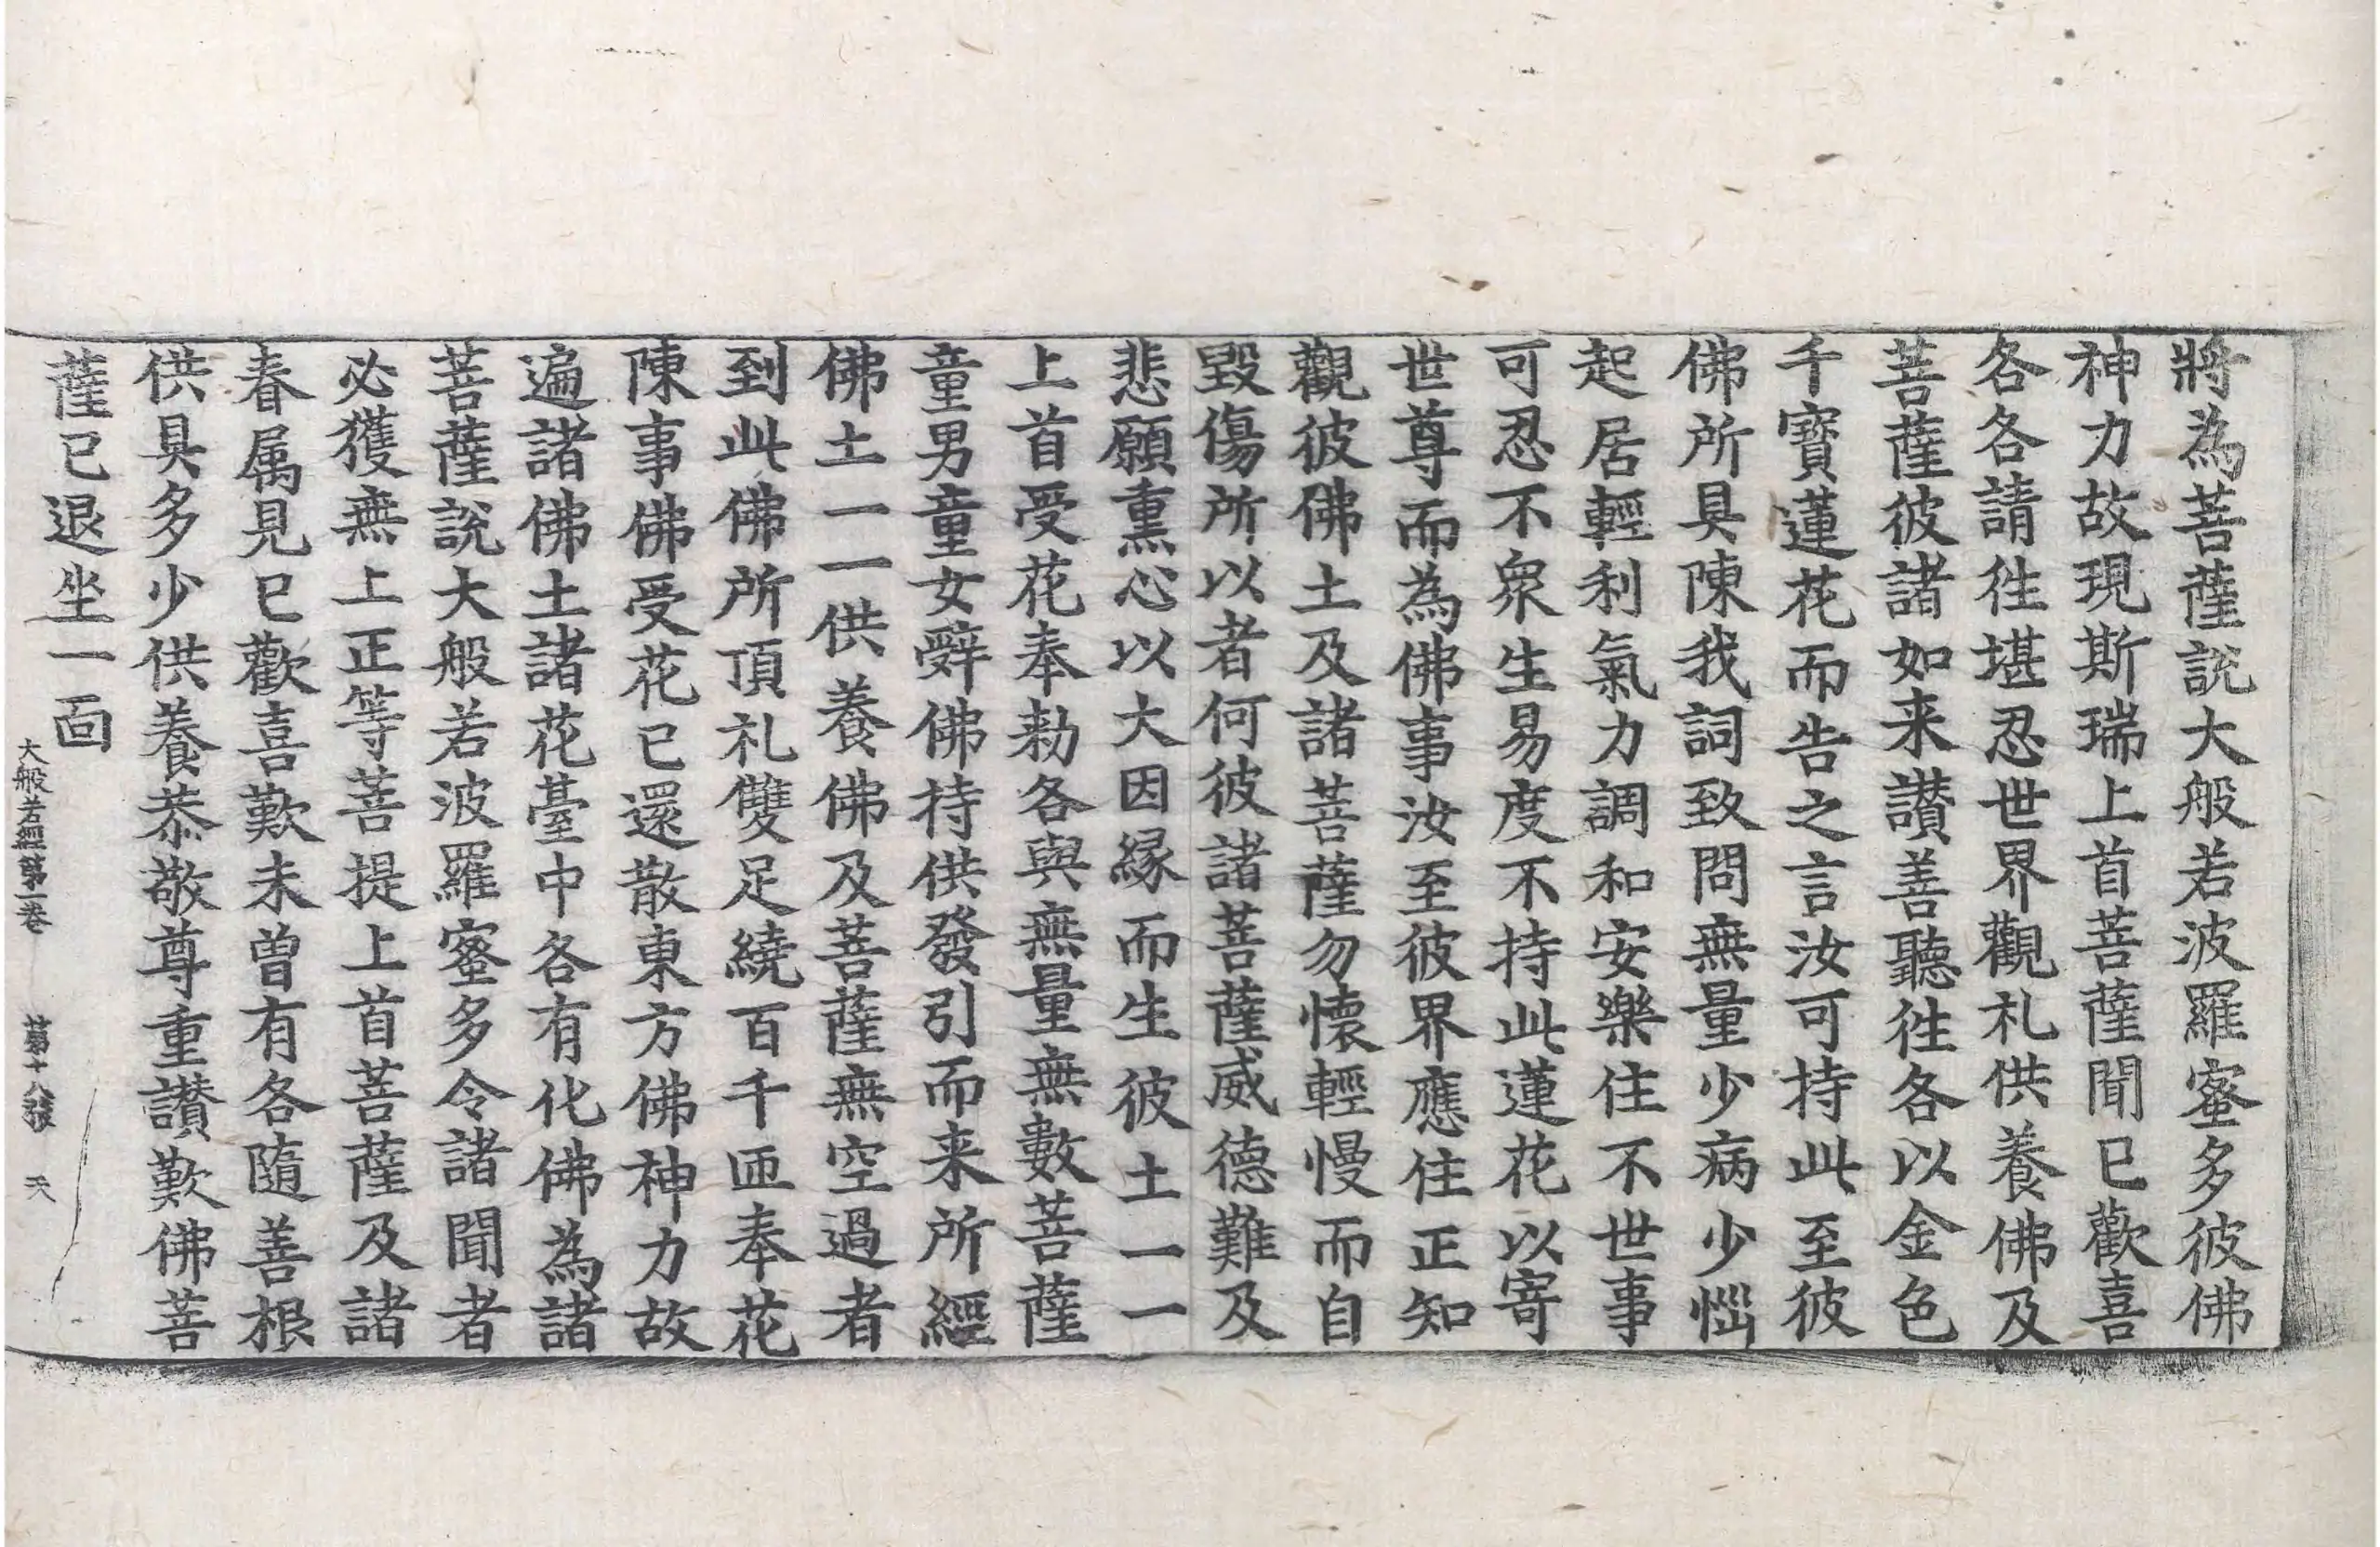 將為菩薩說大般若波羅蜜多彼佛
神力故現斯瑞上首菩薩聞已歡喜
各各請往堪忍世界觀礼供養佛及
菩薩彼諸如来讃善聽往各以金色
千寶蓮花而告之言汝可持此至彼
佛所具陳我詞致問無量少病少惱
起居輕利氣力調和安樂住不世事
可忍不衆生易度不持此蓮花以寄
世尊而為佛事汝至彼界應住正知
觀彼佛土及諸菩薩勿懷輕慢而自
毀傷所以者何彼諸菩薩威德難及
悲願熏心以大因緣而生彼土一一
上首受花奉勅各與無量無數菩薩
童男童女辭佛持供發引而来所經
佛土一一供養佛及菩薩無空過者
到此佛所頂礼雙足繞百千匝奉花
陳事佛受花已還散東方佛神力故
遍諸佛土諸花臺中各有化佛為諸
菩薩說大般若波羅蜜多令諸聞者
必獲無上正等菩提上首菩薩及諸
眷属見已歡喜歎未曾有各隨善根
供具多少供養恭敬尊重讃歎佛菩
薩已退坐一面
大般若經第一卷 第十八張 天